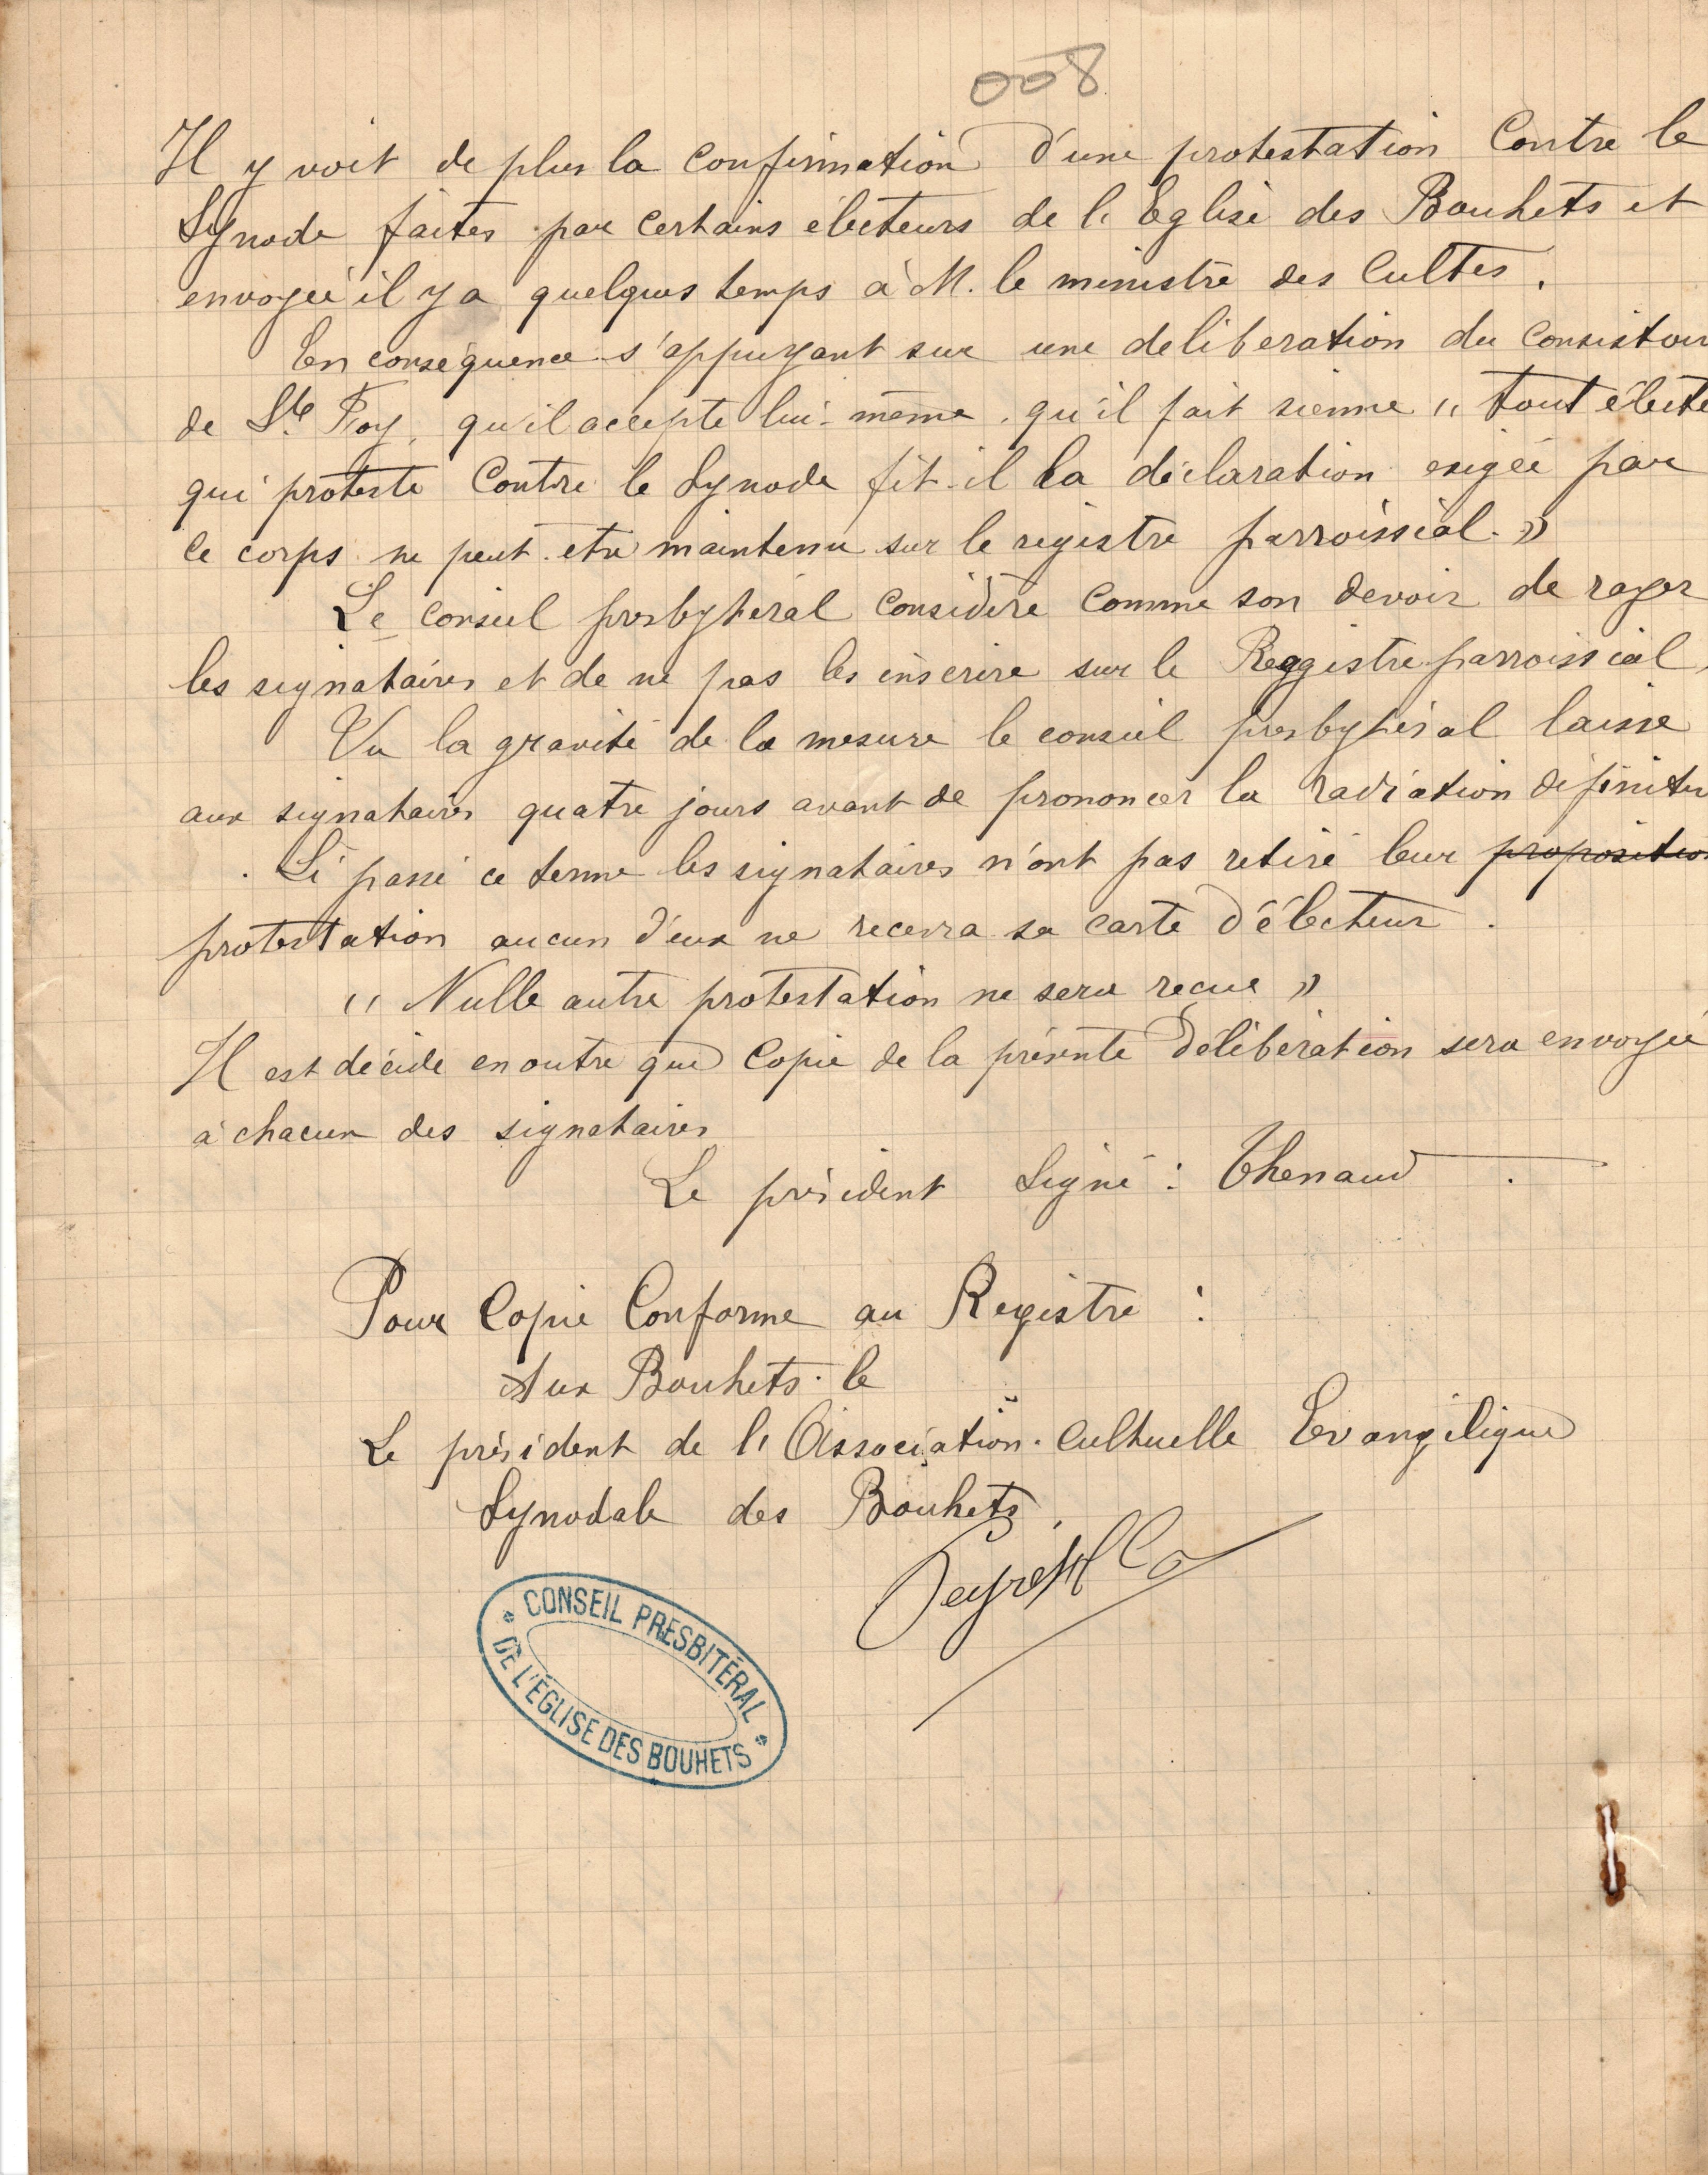 008
Il y voit de plus la confirmation d'une protestation Contre le
Synode faites par certains électeurs de l'Eglise des Bouhets et
envoyée il y a quelques temps à M. le ministre des Cultes.
En conséquence s'appuyant sur une deliberation du Consistoir
de Ste Foy, qu'il accepte lui-même, qu'il fait sienne " tout électe
qui proteste Contre le Synode fit-il la déclaration exigée par
ce corps ne peut etre maintenu sur le régistre parroissial. »
Le conseil presbytéral Considère Comme son devoir de rayer
les signataires et de ne pas les inscrire sur le Reggistre parroissial,
Vu la gravité de la mesure le conseil presbytéral laisse
aux signataires quatre jours avant de prononcer la radiation définitiv
Si passé ce terme les signataires n'ont pas retiré leur proposition
protestation aucun d'eux ne recevra sa carte d'électeur.
" Nulle autre protestation ne sera reçue »
Il est décidé en outre que Copie de la présente délibération sera envoyée
à chacun des signataires
Le président Signé : Thenaud.
Pour Copie Conforme au Registre :
Aux Bouhets. le
Le président de l'Association. Cultuelle Evangélique
Synodale des Bouhets,
CONSEIL PRESBITÉRAL
DE L'ÉGLISE DES BOUHETS